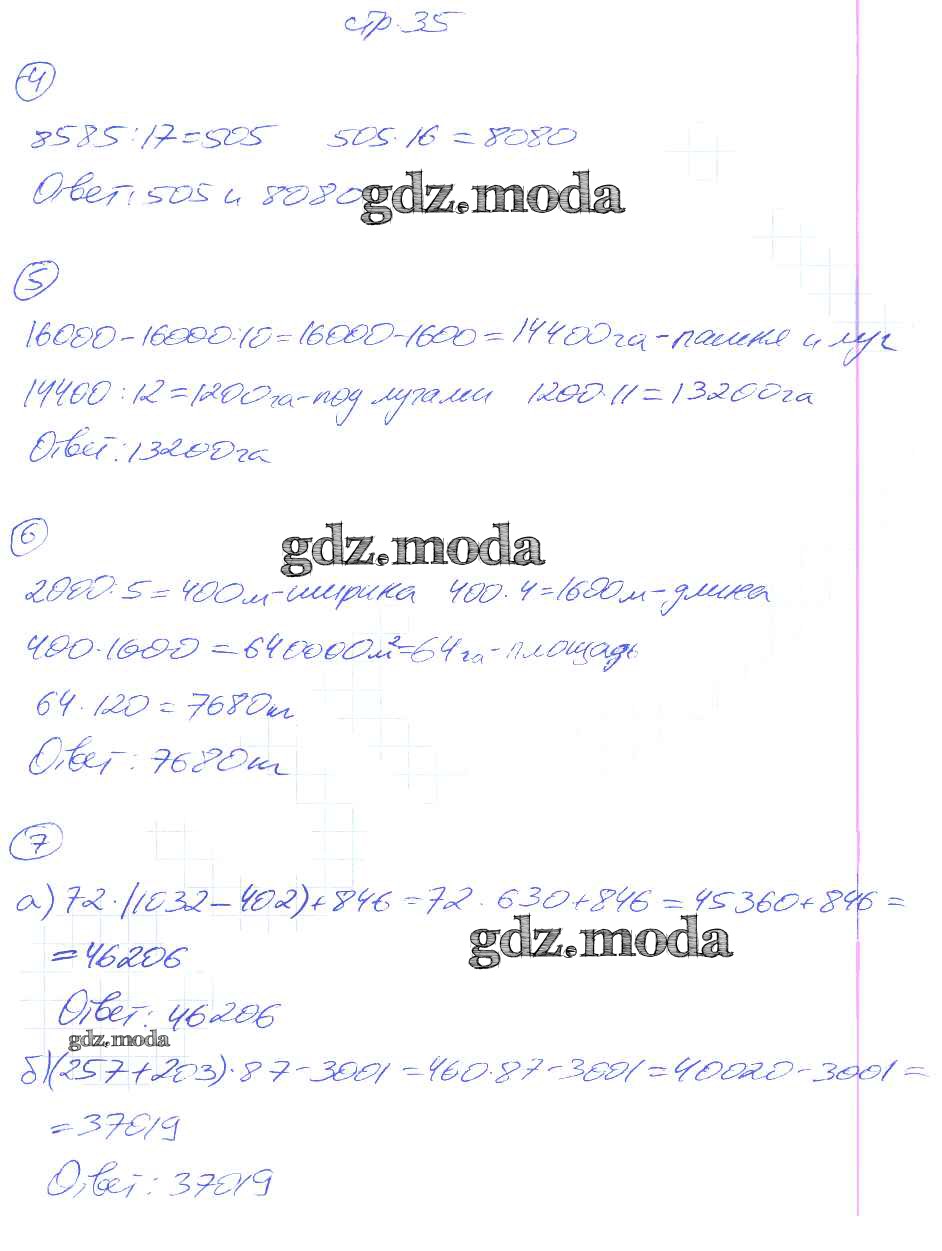 стр. 35
4
8585:17=505 505·16=8080
Ответ: 505 и 8080
gdz.moda
5
16000-16000:10=16000-1600=14400га-пашня и луг
14400:12=1200га-под лугами 1200·11=13200га
Ответ: 13200га
6
gdz.moda
2000:5=400м-ширина 400·4=1600м-длина
400·1600=640000м²=64га-площадь
64·120=7680т
Ответ: 7680т
7
а) 72·(1032-402)+846=72·630+846=45360+846=
=46206
gdz.moda
Ответ: 46206
gdz.moda
б) (257+203)·87-3001=460·87-3001=40020-3001=
=37019
Ответ: 37019